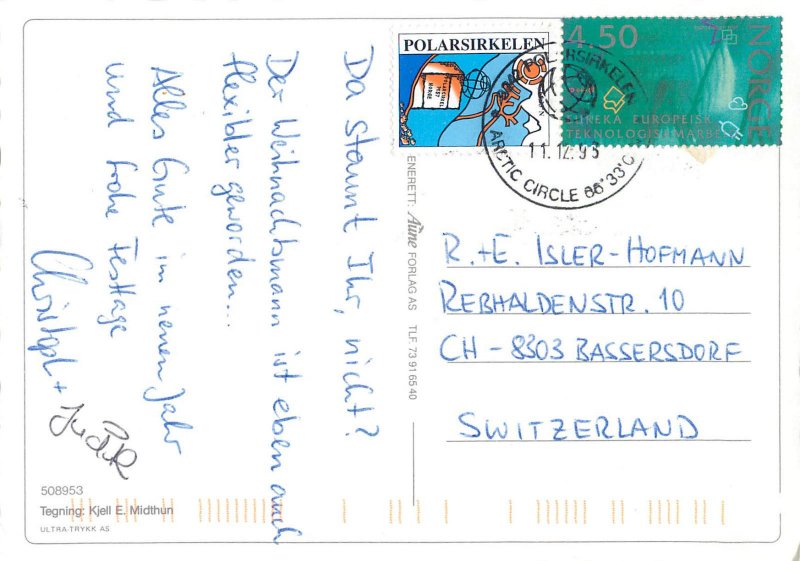 Da staunt Ihr, nicht?
Der Weihnachtsmann ist eben auch
flexibler geworden...
Alles Gute im neuen Jahr
und frohe Festtage
Christoph + Judith
508953
Tegning: Kjell E. Midthun
ULTRA-TRYKK AS
ENERETT: Aune FORLAG AS TLF. 73 91 65 40
POLARSIRKELEN
4.50
NORGE
EUREKA EUROPEISK
TEKNOLOGISAMARBEID
POLARSIRKELEN
11.12.93
ARCTIC CIRCLE 66°33'
R.+E. ISLER-HOFMANN
REBHALDENSTR. 10
CH - 8303 BASSERSDORF
SWITZERLAND